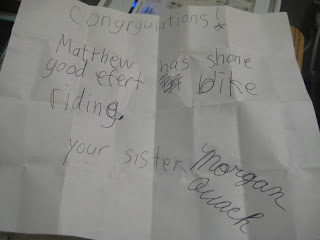 Congrgulations!
Matthew has shone
good efert bike
riding.
your sister Morgan
Quach